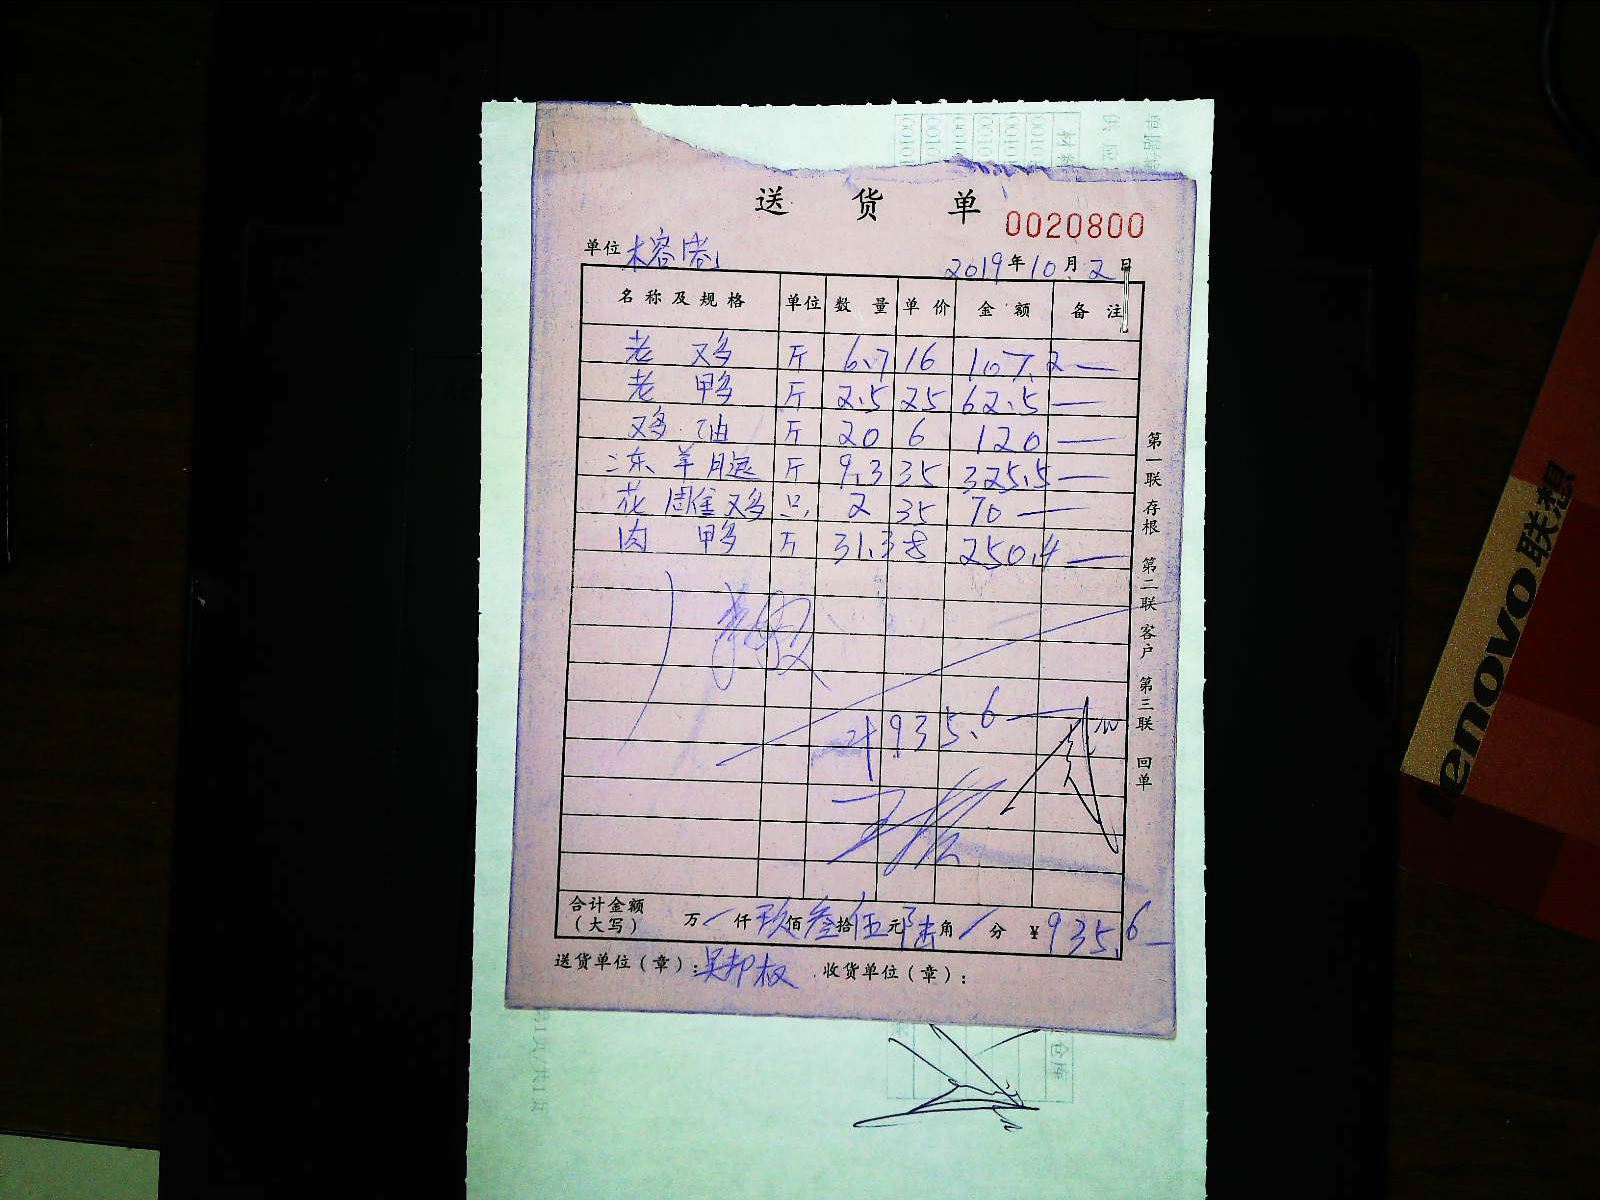 送货单
0020800
单位
2019年10月2日
名称及规格 单位 数量 单价 金额 备注
老鸡 斤 6.7 16 107.2—
老鸭 斤 2.5 25 62.5—
鸡油 斤 20 6 120—
冻羊腿 斤 9.3 35 325.5—
花雕鸡 只 2 35 70—
肉鸭 斤 31.3 8 250.4—
计935.6—
合计金额
（大写） 万/仟玖佰叁拾伍元陆角/分 ¥935.6—
送货单位（章）：吴邦权 收货单位（章）：
第一联 存根 第二联 客户 第三联 回单
lenovo联想
第1页/共1页
仓库